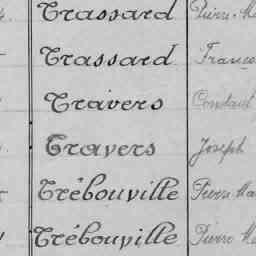 Trassard Pierre
Trassard
Travers Constant
Travers Joseph
Trébouville Pierre
Trébouville Pierre